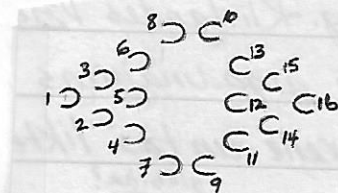 8 10
6 13
3 15
1 5 12 16
2 14
4 11
7 9